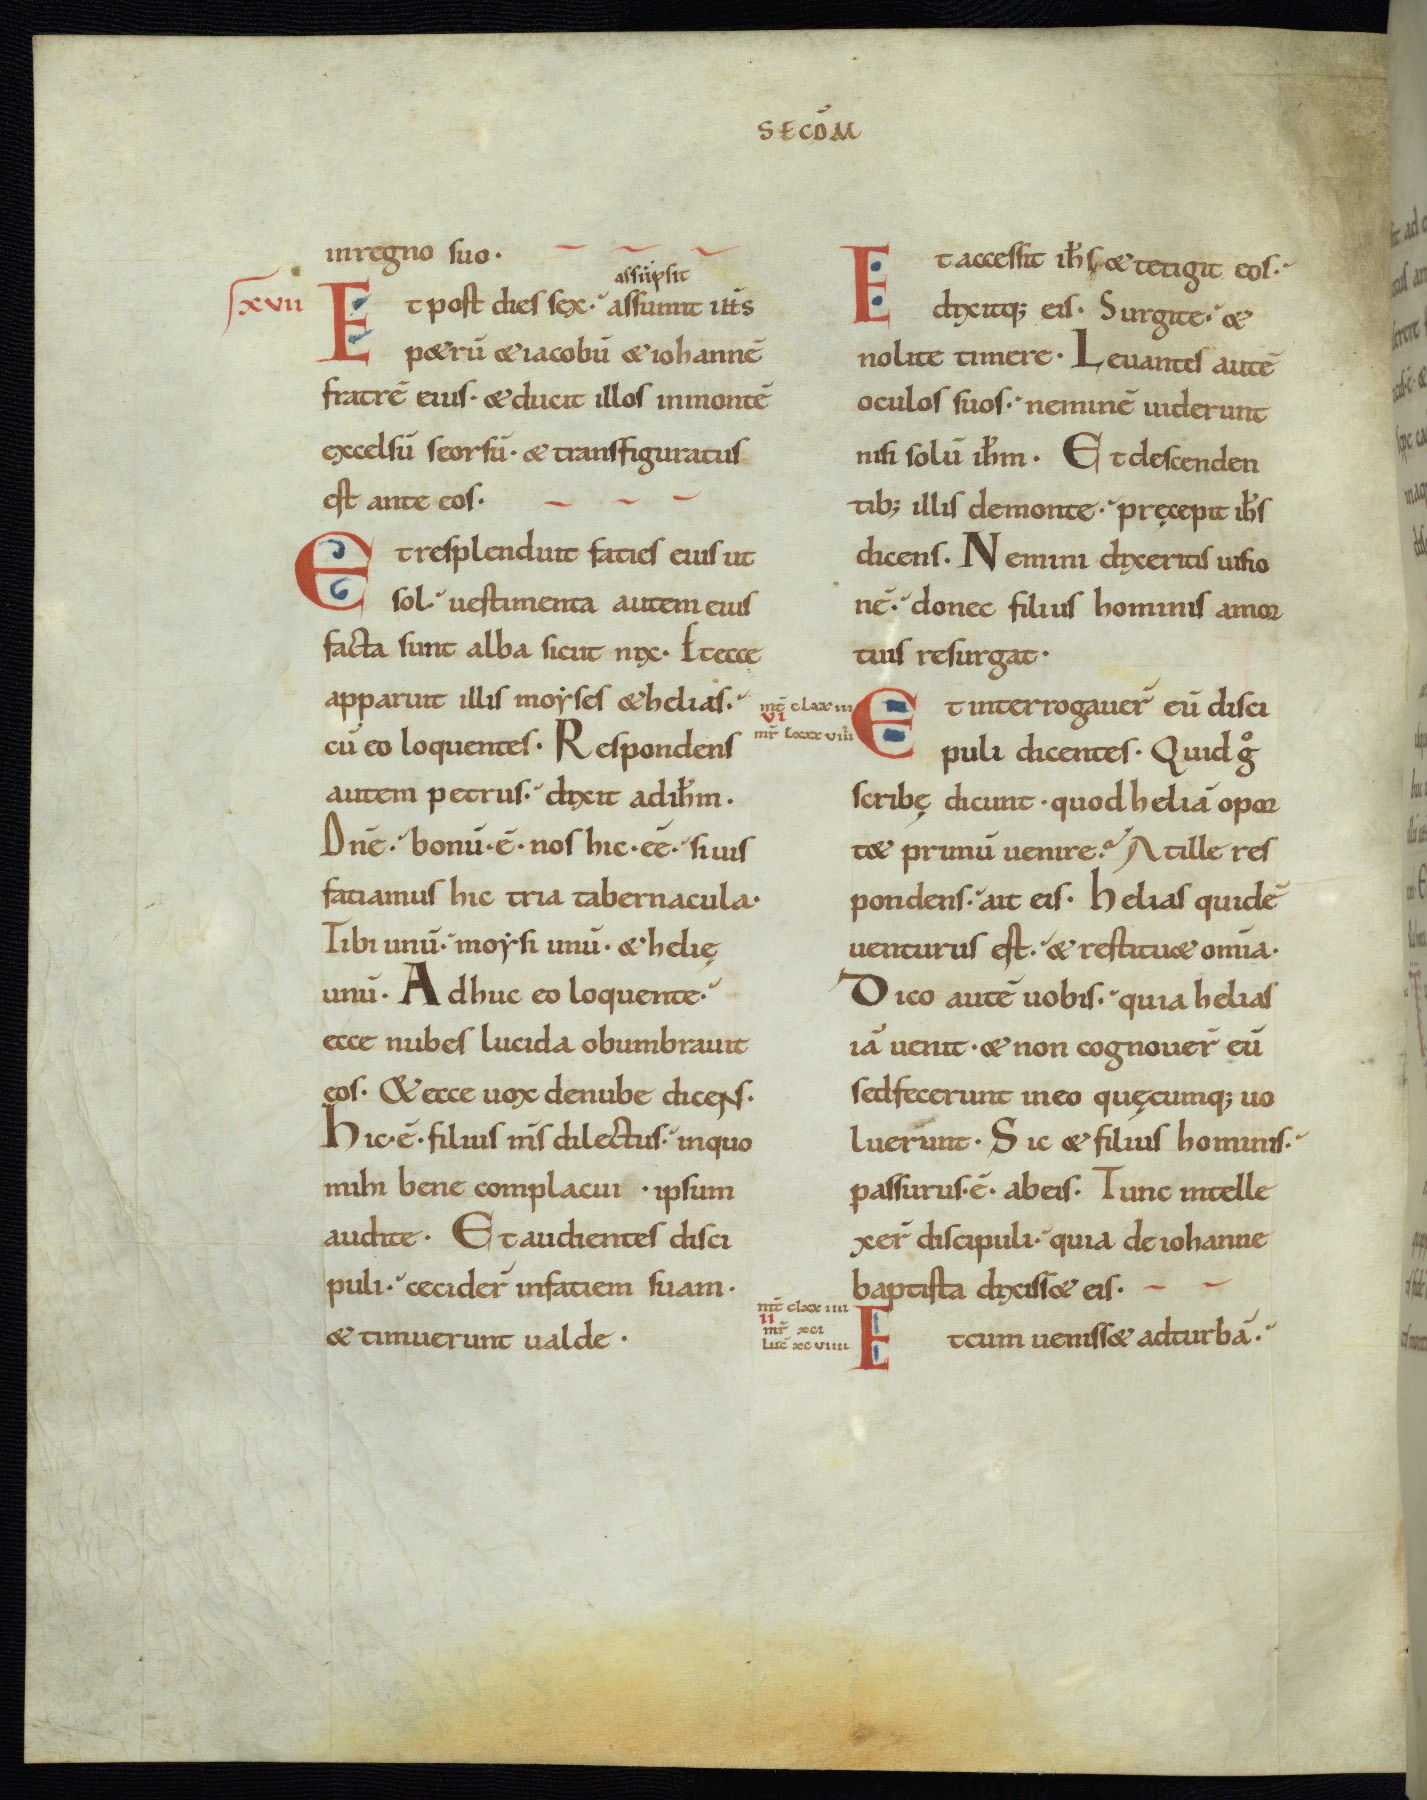 SECD̄M
in regno suo·
xvii
assūpsit
Et post dies sex· assumit ih̄s
petrū & iacobū & iohannē
fratrē eius· & ducit illos in montē
excelsū seorsū· & transfiguratus
est ante eos·
Et resplenduit faties eius ut
sol· uestimenta autem eius
facta sunt alba sicut nix· Et ecce
apparuit illis moyses & helias·
cū eo loquentes· Respondens
autem petrus· dixit ad ih̄m·
Dn̄e· bonū·ē· nos hic·eē· si uis
fatiamus hic tria tabernacula·
Tibi unū· moysi unū· & helię
unū· Adhuc eo loquente·
ecce nubes lucida obumbrauit
eos· & ecce uox de nube dicens·
Hic·ē· filius m̄s dilectus· in quo
mihi bene complacui · ipsum
audite· Et audientes disci
puli· cecider̄ in fatiem suam·
& timuerunt ualde·
Et accessit ih̄s & tetigit eos·
dixitq; eis· Surgite· &
nolite timere· Leuantes autē
oculos suos· neminē uiderunt
nisi solū ih̄m· Et descenden
tib; illis de monte· pręcepit ih̄s
dicens· Nemini dixeritis uisio
nē· donec filius hominis a mor
tuis resurgat·
mt̄ clxxiii
vi
mr̄ lxxxviiii
Et interrogauer̄ eū disci
puli dicentes· Quid gͦ
scribę dicunt· quod heliā opor
t& primū uenire· At ille res
pondens· ait eis· Helias quidē
uenturus est· & restitu& omīa·
Dico autē uobis· quia helias
iā uenit· & non cognouer̄ eū
sed fecerunt in eo quęcumq; uo
luerunt· Sic & filius hominis·
passurus·ē· ab eis· Tunc intelle
xer̄ discipuli· quia de iohanne
baptista dixiss& eis·
mt̄ clxxiiii
ii
mr̄ xci
luc̄ xcviiii
Et cum ueniss& ad turbā·